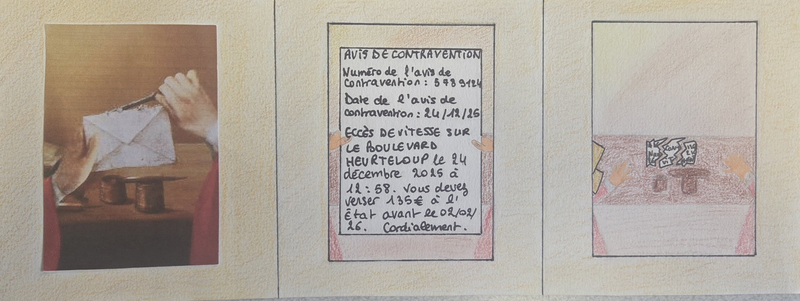 AVIS DE CONTRAVENTION
Numéro de l'avis de
contravention : 5789124
Date de l'avis de
contravention : 24/12/25
ECCÈS DE VITESSE SUR
LE BOULEVARD
HEURTELOUP le 24
décembre 2025 à
12 : 58. Vous devez
verser 135€ à l'
État avant le 02/02/
26. Cordialement.